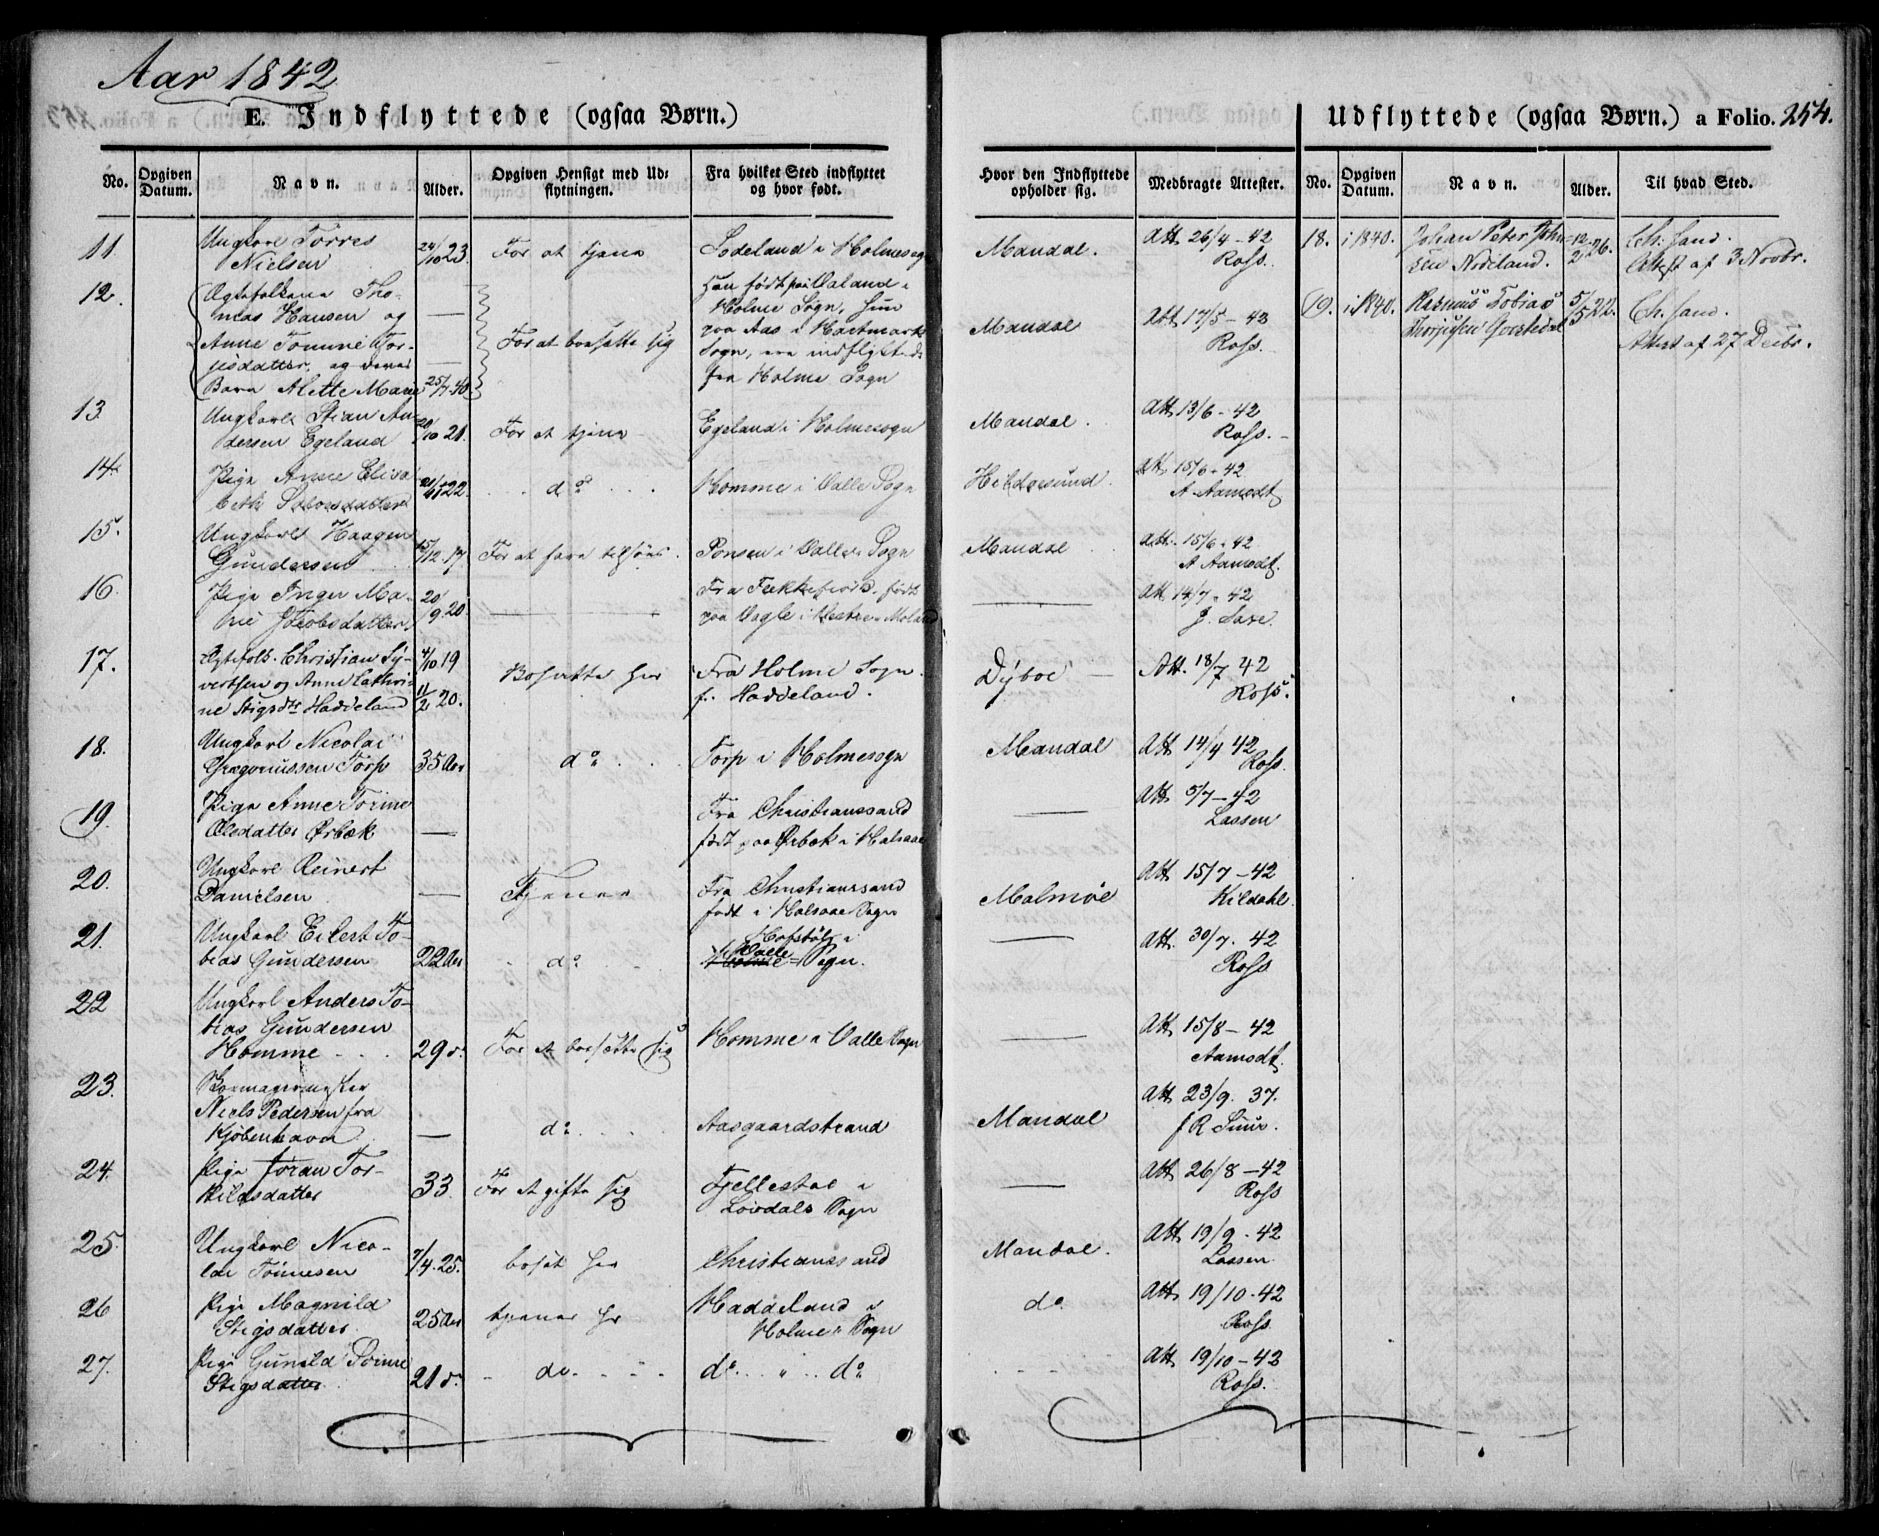 Aar 1842
E. Indflyttede (ogsaa Børn.)
Udflyttede (ogsaa Børn.) a Folio. 254.
No. Opgiven Datum. Navn. Alder. Opgiven Hensigt med Udflytningen. Fra hvilket Sted indflyttet og hvor født. Hvor den Indflyttede opholder sig. Medbragte Attester. No. Opgiven Datum. Navn. Alder. Til hvad Sted.
11. Ungkarl Torres Nielsen 24/10 23. For at tjene i Holmesogn Mandal. Att. 26/4 - 42 Ross.
12. Ægtefolkene Thomas Hansen og Anne Tomine og deres Barn Alette Marie 25/7 40 For at bosætte sig Holme Sogn, hun paa Aas i Hartmark Sogn, ere indflyttede fra Holme Sogn Mandal Att. 17/5 - 43 Ross.
13. Ungkarl Stian Andersen Egeland 21. For at tjene Egeland i Holmesogn Mandal. Att. 13/6 - 42 Ross.
14. Pige Anne Elisabeth 22. do Homme i Valle Sogn Att. 15/6 - 42 A Aamodt
15. Ungkarl Haagen Gundersen 15/12 17 For at fare tilsøes. i Valle Sogn Mandal Att. 15/6 - 42 A Aamodt.
16. Pige Inger Marie Jacobsdatter 20/9 20. Fra Flekkefiord, født paa Vagle i Att. 14/7 - 42
17. Ægtefolk. Christian Sÿvertsen og Anne Cathrine Stigsdtr Haddeland 4/10 19 11/2 20. Bosætte her Fra Holme Sogn f. Haddeland. Dÿboe Att. 18/7 42 Ross.
18. Ungkarl Nicolai Gregoriussen Torp 35 Aar do Torp i Holmesogn Mandal Att. 14/4 42 Ross.
19. Pige Anne Torine Olsdatter Ørbæk Fra Christianssand født paa Ørbæk i Halsaae Att. 5/7 - 42 Lassen
20. Ungkarl Reinert Danielsen Tjener Fra Christianssand født i Halsaae Sogn Malmøe Att. 15/7 - 42 Kildahl.
21. Ungkarl Eilert Tobias Gundersen 22 Aar do Hofstøl i Valle Holme Sogn. Att. 30/7. 42 Ross
22 Ungkarl Anders Tobias Gundersen Homme 29 For at bosætte sig Homme i Valle Sogn Att. 15/8 - 42 Aamodt.
23. Skomagermester Niels Pedersen fra Kjøbenhavn do Aasgaardstrand Mandal Att. 23/9. 37.
24. Pige Joran Torkildsdatter 33. For at gifte sig Fjellestad i Sogn Att. 26/8 - 42 Ross
25. Ungkarl Nicolai Tönnesen 7/4. 25. bosat her Christianssand Mandal. Att. 19/9 - 42 Lassen.
26 Pige Magnild Stigsdatter 25 Aar tjener her Haddeland i Holme Sogn do Att. 19/10 - 42 Ross
27. Pige Gunild Stigsdatter. 21 do. do „ do Att. 19/10 - 42 Ross.
18. i 1840. Johan Peter Nideland. 26. Ch: sand. Attest af 3 Novbr.
19. i 1840. Rasmus Tobias 5/5 22. Ch. sand. Attest af 27 Decbr.